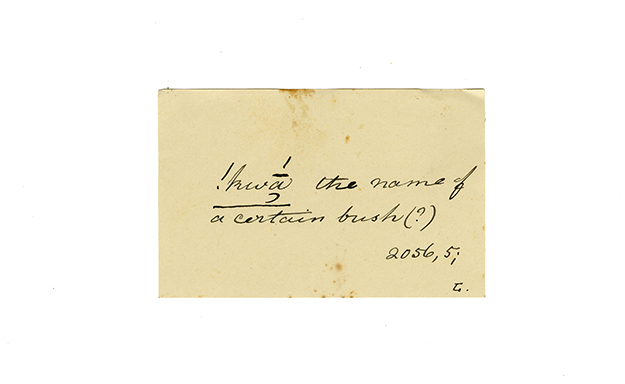 !kwā́ the name of
a certain bush (?)
2056, 5;
L.